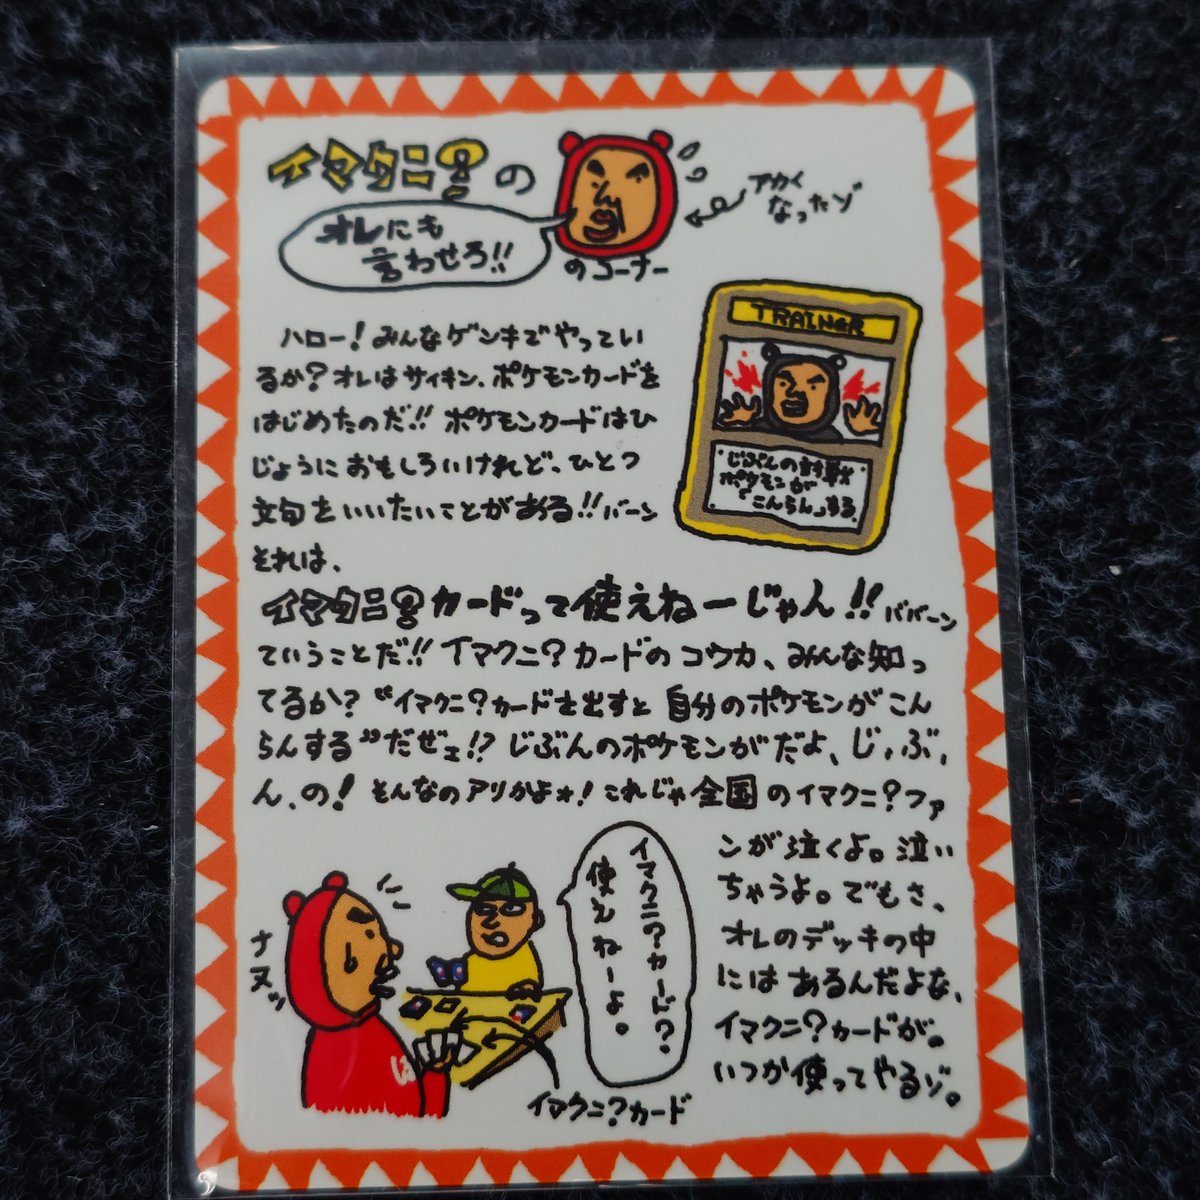 イマクニ?の
オレにも
言わせろ!!
のコーナー
アカく
なったゾ
TRAINER
じぶんの対戦
ポケモンが
「こんらん」する。
ハロー!みんなゲンキでやってい
るか?オレはサイキン、ポケモンカードを
はじめたのだ!!ポケモンカードはひ
じょうにおもしろいけれど、ひとつ
文句をいいたいことがある!!バーン
それは、
イマクニ?カードって使えねーじゃん!!ババーン
ていうことだ!!イマクニ?カードのコウカ、みんな知っ
てるか?“イマクニ?カードを出すと自分のポケモンがこん
らんする”だぜェ!?じぶんのポケモンがだよ、じ、ぶ、
ん、の!そんなのアリかよォ!これじゃ全国のイマクニ?ファ
ンが泣くよ。泣い
ちゃうよ。でもさ、
オレのデッキの中
にはあるんだよな、
イマクニ?カードが。
いつか使ってやるゾ。
イマクニ?カード?
使えねーよ。
ナヌッ
イマクニ?カード